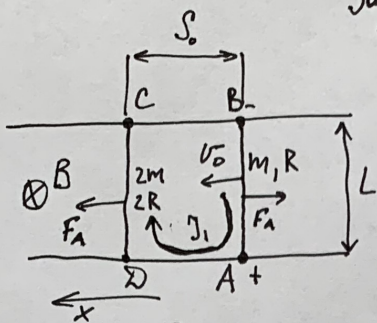 S₀
C B-
⊗ B 2m 2R v₀ m, R L
F_A J₁ F_A
D A +
x